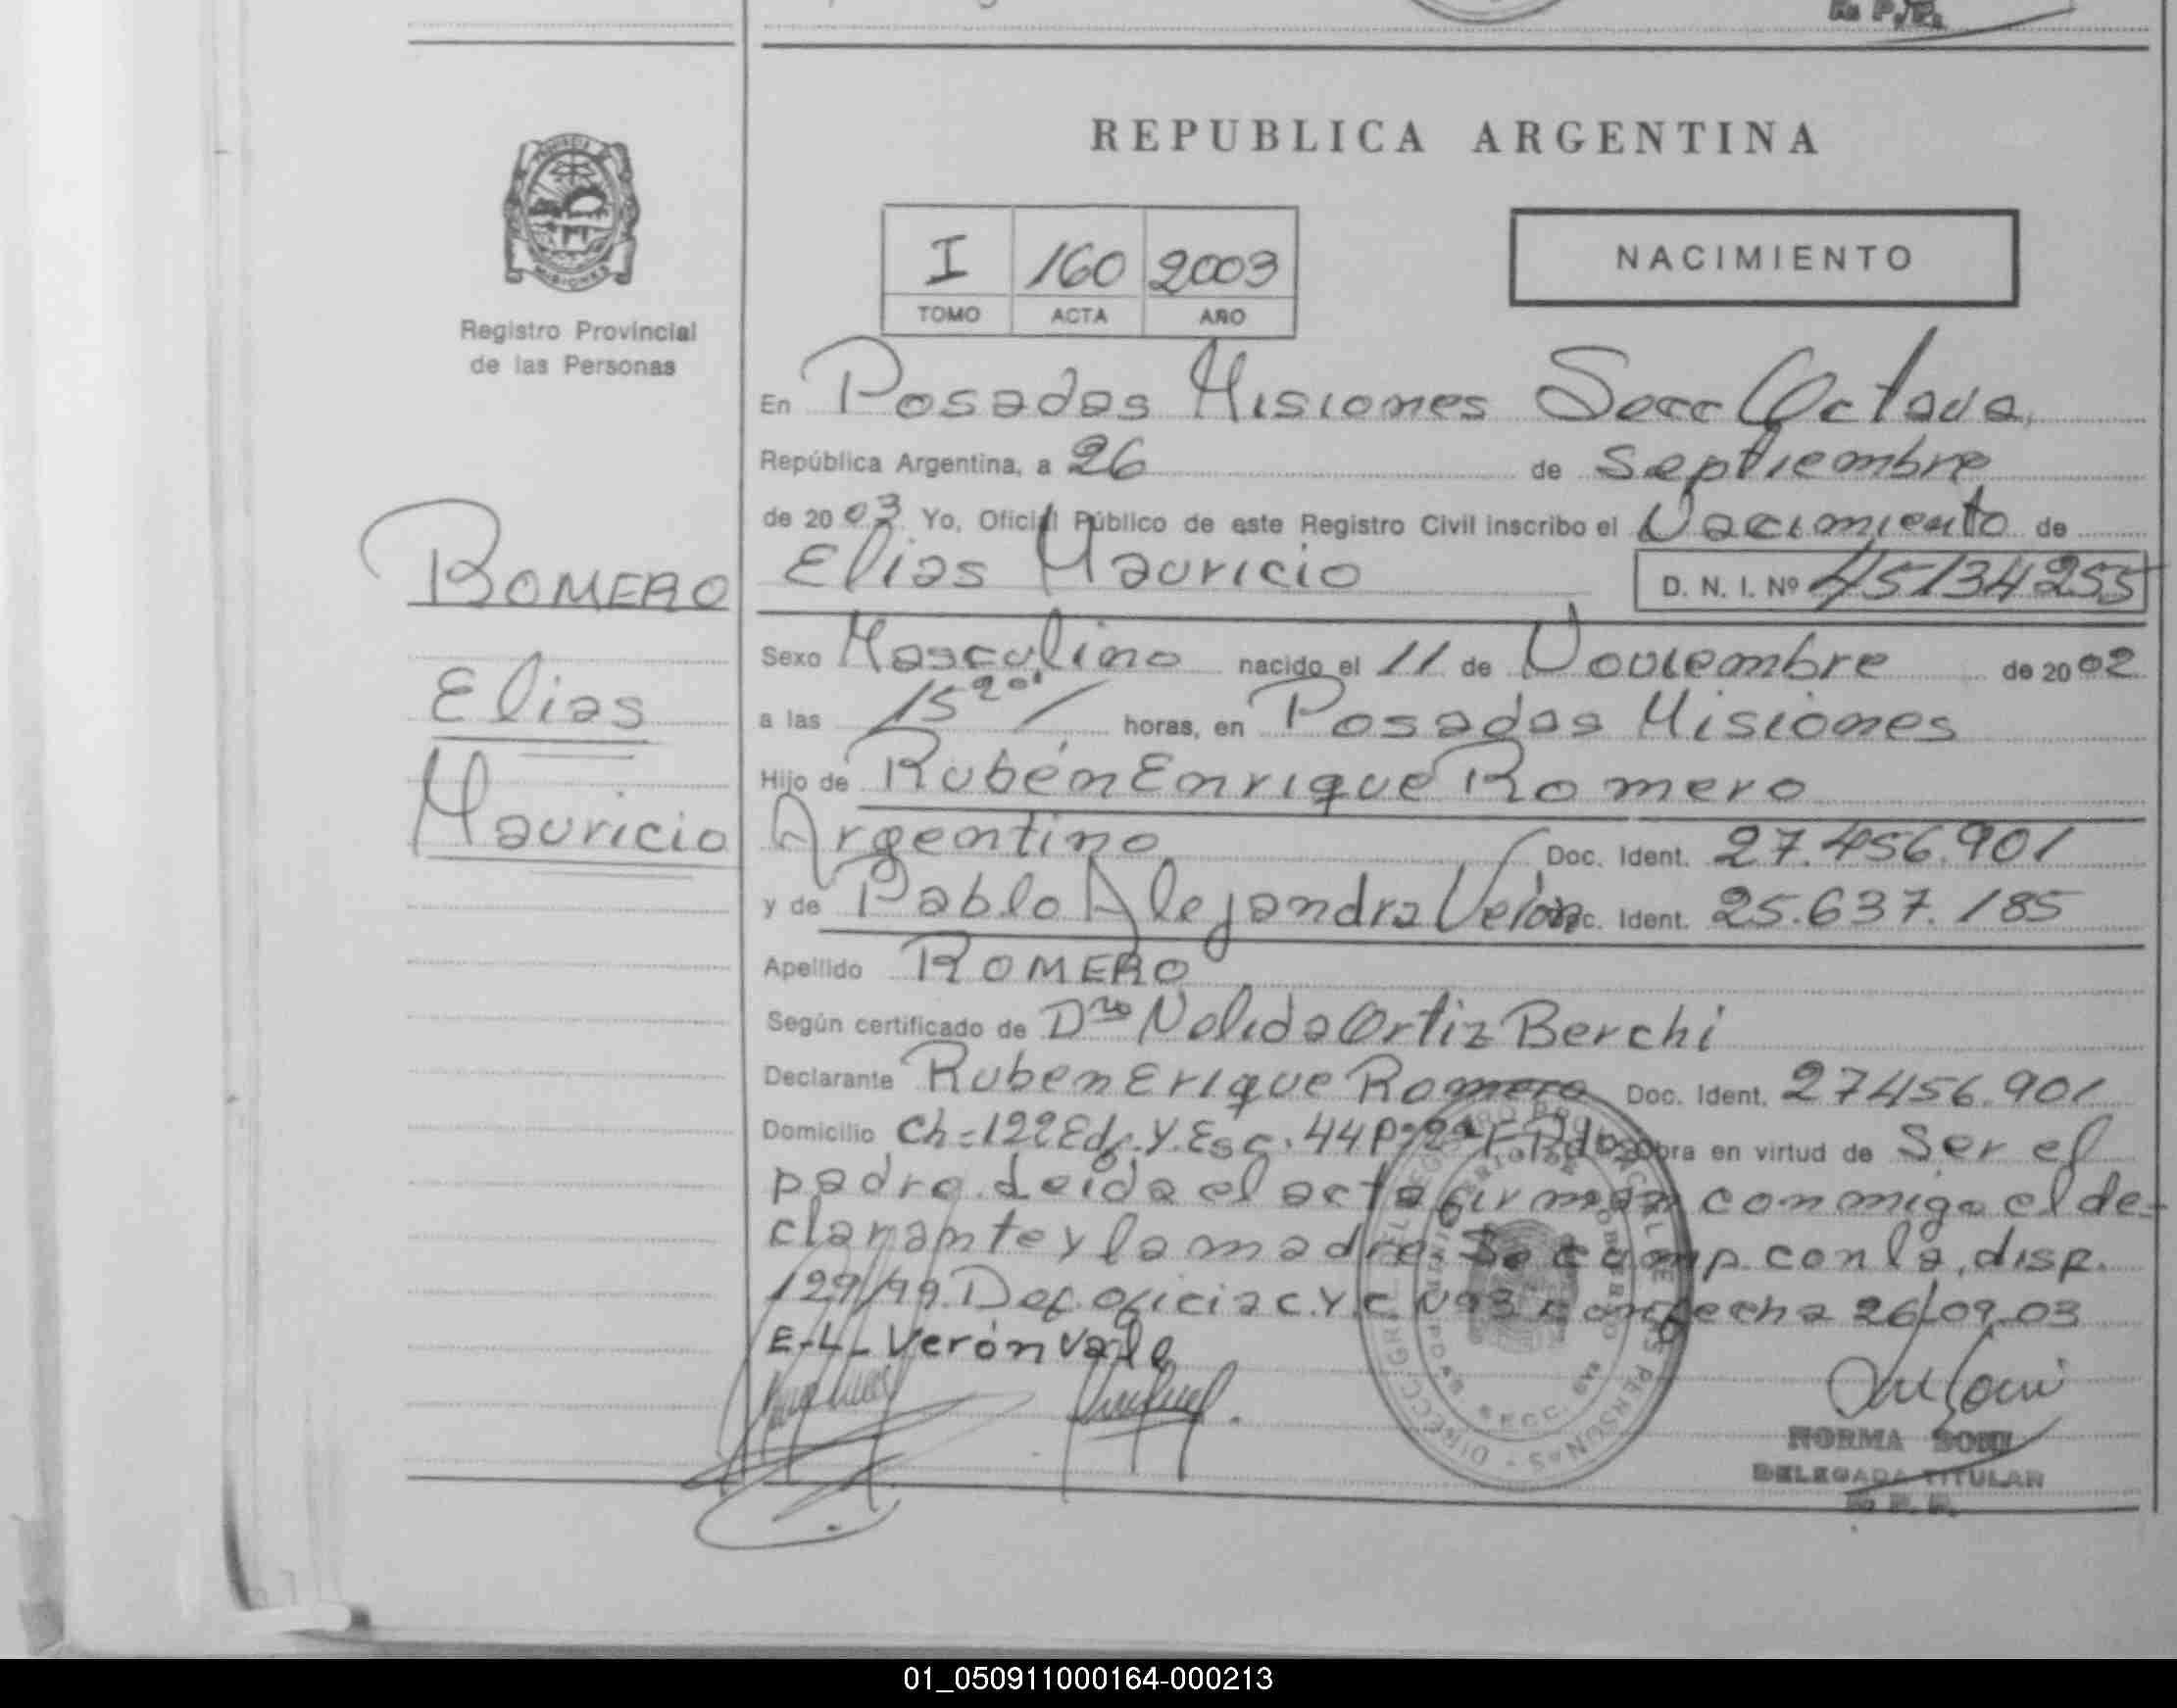 R. P. P.
REPUBLICA ARGENTINA
PROVINCIA DE MISIONES
Registro Provincial
de las Personas
I 160 2003
TOMO ACTA AÑO
NACIMIENTO
En Posadas Misiones Secc Octava
República Argentina, a 26 de Septiembre
de 2003 Yo, Oficial Público de este Registro Civil inscribo el Nacimiento de
Elias Mauricio D. N. I. Nº 45134255
ROMERO
Elias
Mauricio
Sexo Masculino nacido el 11 de Noviembre de 2002
a las 15 20' horas, en Posadas Misiones
Hijo de Rubén Enrique Romero
Argentino Doc. Ident. 27.456.901
y de Pablo Alejandra Verón Doc. Ident. 25.637.185
Apellido ROMERO
Según certificado de Dra Nelida Ortiz Berchi
Declarante Ruben Erique Romero Doc. Ident. 27456.901
Domicilio Ch=122 Edf. Y. Esc. 44 P=2 Obra en virtud de Ser el
padre. Leida el acta firman conmigo el de=
clarante y la madre. Se comp. con la disp.
129/99. Def. oficia c. y. c Nº3 con fecha 26/09-03
E-L- Verón vale
DIRECC. GRAL. DEL REGISTRO PROVINCIAL DE LAS PERSONAS
SECC. 8va
NORMA SONI
DELEGADA TITULAR
R. P. P.
01_050911000164-000213